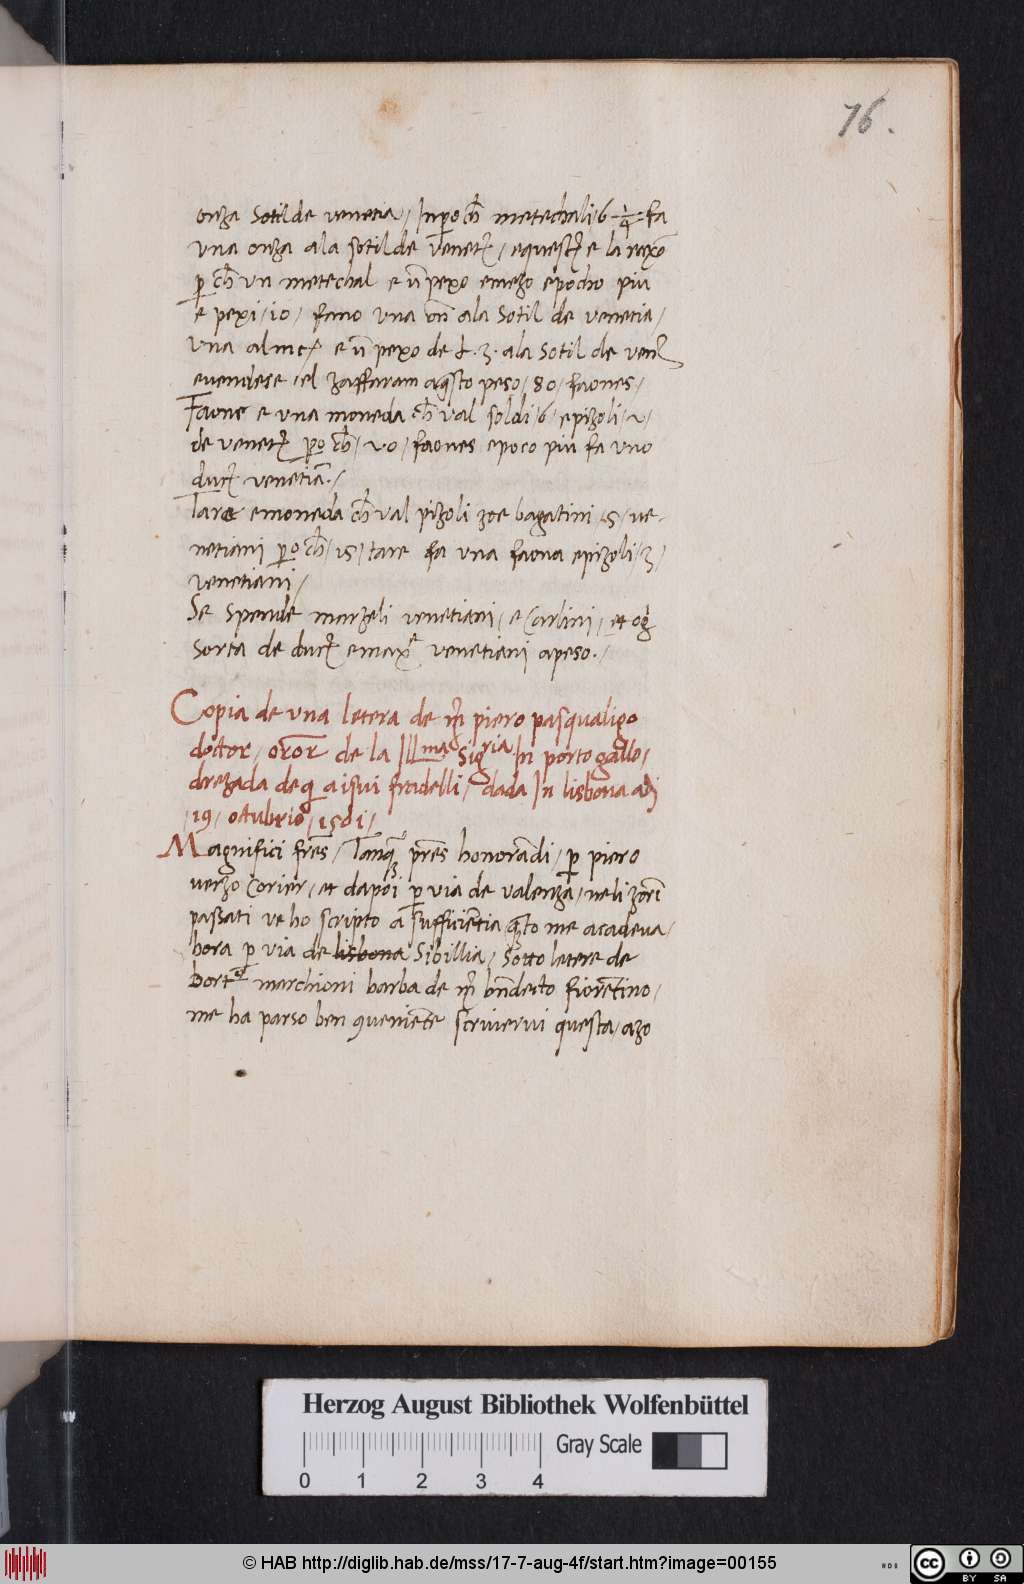 76.
onza Sotil de venetia, In pero ch̄ metechali 6 ¼ fa
vna onza ala sotil de venet̄, e questī e la raxō
p̱ ch̄ vn metechal e ū pexo emezo e pocho piu
e pexi, 10, fano vna on̄ ala Sotil de venetia,
Vna almeī e ū pexo de £.3. ala Sotil de venł
evendese el zaffaram a q̄sto peso, 80, faones,
Faone e vna moneda ch̄ val soldi, 6, e pizoli, v,
de venet̄ p̱o ch̄, vo, faones e poco piu fa vno
duct̄ venetiā./
Tare e moneda ch̄ val pizoli zoe bagatini, 5, ve-
netiani p̱o ch̄, 15, tare fa vna faona e pizoli, 3,
venetiani,
Se Spende marzeli venetiani, e Carlini, et og
Sorta de duct̄ emax venetiani a peso./
Copia de vna letera de m̄ piero pasqualigo
doctor, oror̄ de la Ill^ma Sig^ria In portogallo,
drezada de q̱ a i sui fradelli, dada In lisbona adj
,19, octubrio, 1501,
Magnifici fr̄es, Tanq̄ pr̄es honorādi, p̱ piero
verzo Corier, et dapoi p̱ via de valenza, neli zorī
passati ve ho scripto a sufficiētia q̄to me acadeva,
hora p̱ via de lisbona Sibillia, Sotto letere de
Bort° marchioni barba de m̄ bn̄deto fiorētino,
me ha parso ben ꝯveniēte scrivervi questa, azo
Herzog August Bibliothek Wolfenbüttel
Gray Scale
0 1 2 3 4
© HAB http://diglib.hab.de/mss/17-7-aug-4f/start.htm?image=00155
cc BY SA